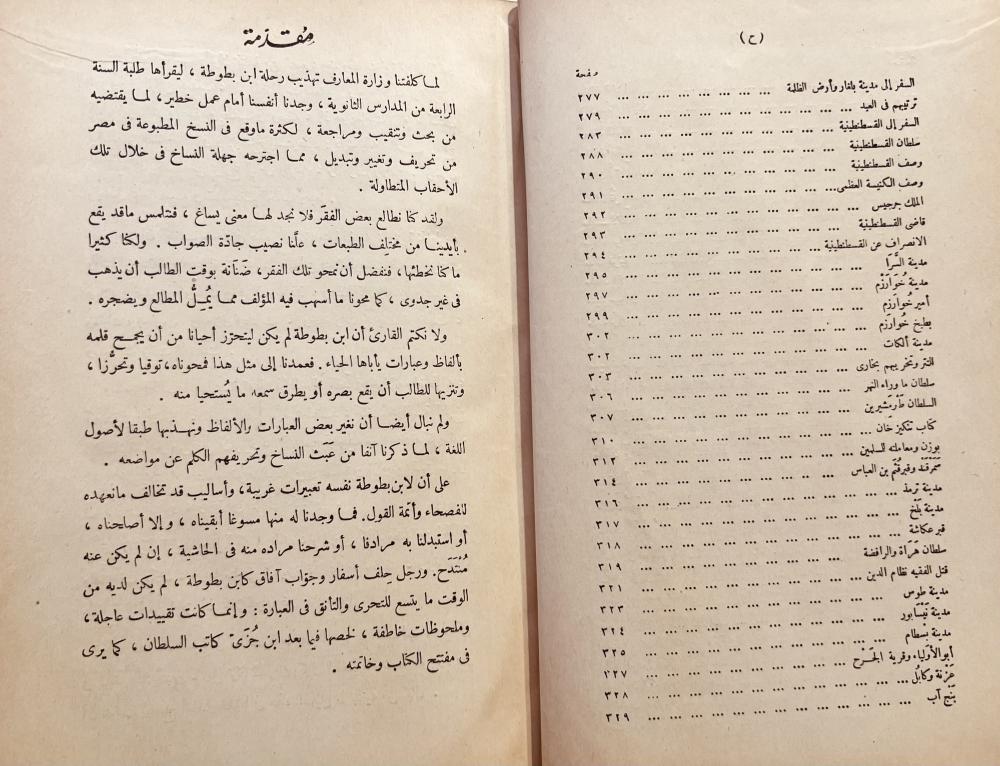 (ح)
صفحة
السفر إلى مدينة بلغار وأرض الظلمة ... ... ... ... ... ... ... ... ٢٧٧
ترتيبهم فى العيد ... ... ... ... ... ... ... ... ... ... ... ٢٧٩
السفر إلى القسطنطينية ... ... ... ... ... ... ... ... ... ... ٢٨٣
سلطان القسطنطينية ... ... ... ... ... ... ... ... ... ... ٢٨٨
وصف القسطنطينية ... ... ... ... ... ... ... ... ... ... ٢٩٠
وصف الكنيسة العظمى ... ... ... ... ... ... ... ... ... ... ٢٩١
الملك جرجيس ... ... ... ... ... ... ... ... ... ... ... ٢٩٢
قاضى القسطنطينية ... ... ... ... ... ... ... ... ... ... ٢٩٣
الانصراف عن القسطنطينية ... ... ... ... ... ... ... ... ... ٢٩٤
مدينة السَّرَا ... ... ... ... ... ... ... ... ... ... ... ٢٩٥
مدينة خُوَارَزْم ... ... ... ... ... ... ... ... ... ... ... ٢٩٧
أمير خُوارزم ... ... ... ... ... ... ... ... ... ... ... ٢٩٩
بطيخ خُوارزم ... ... ... ... ... ... ... ... ... ... ... ٣٠٢
مدينة ألكات ... ... ... ... ... ... ... ... ... ... ... ٣٠٢
التتر وتخريبهم بخارى ... ... ... ... ... ... ... ... ... ... ٣٠٣
سلطان ما وراء النهر ... ... ... ... ... ... ... ... ... ... ٣٠٦
السلطان طَرْمَشيرين ... ... ... ... ... ... ... ... ... ... ٣٠٧
كتاب تنكيز خان ... ... ... ... ... ... ... ... ... ... ... ٣١٠
بوزن ومعاملته للمسلمين ... ... ... ... ... ... ... ... ... ٣١٢
سَمَرْقَند وقبر قُثَم بن العباس ... ... ... ... ... ... ... ... ٣١٤
مدينة ترمذ ... ... ... ... ... ... ... ... ... ... ... ٣١٦
مدينة بَلْخ ... ... ... ... ... ... ... ... ... ... ... ٣١٧
قبر عكاشة ... ... ... ... ... ... ... ... ... ... ... ٣١٨
سلطان هَرَاة والرافضة ... ... ... ... ... ... ... ... ... ... ٣١٩
قتل الفقيه نظام الدين ... ... ... ... ... ... ... ... ... ... ٣٢١
مدينة طوس ... ... ... ... ... ... ... ... ... ... ... ٣٢٣
مدينة نَيْسَابور ... ... ... ... ... ... ... ... ... ... ... ٣٢٤
مدينة بَسْطام ... ... ... ... ... ... ... ... ... ... ... ٣٢٥
أبو الأولياء وقرية الجَرْخ ... ... ... ... ... ... ... ... ... ٣٢٧
غَزْنة وكابُل ... ... ... ... ... ... ... ... ... ... ... ٣٢٨
بَنْج آب ... ... ... ... ... ... ... ... ... ... ... ٣٢٩
مُقدّمة
لما كلفتنا وزارة المعارف تهذيب رحلة ابن بطوطة ، ليقرأها طلبة السنة
الرابعة من المدارس الثانوية ، وجدنا أنفسنا أمام عمل خطير ، لما يقتضيه
من بحث وتنقيب ومراجعة ، لكثرة ماوقع فى النسخ المطبوعة فى مصر
من تحريف وتغيير وتبديل ، مما اجترحه جهلة النساخ فى خلال تلك
الأحقاب المتطاولة .
ولقد كنا نطالع بعض الفقَر فلا نجد لها معنى يساغ ، فنتلمس ماقد يقع
بأيدينا من مختلِف الطبعات ، علَّنا نصيب جادّة الصواب . ولكنا كثيرا
ما كنا نخطئها، فنفضل أن نمحو تلك الفقر، ضَنَانة بوقت الطالب أن يذهب
فى غير جدوى ، كما محونا ما أسهب فيه المؤلف مما يُمِلُّ المطالع ويضجره .
ولا نكتم القارئ أن ابن بطوطة لم يكن ليتحترز أحيانا من أن يجمح قلمه
بألفاظ وعبارات يأباها الحياء . فعمدنا إلى مثل هذا فمحوناه، توقيا وتحرُّزا ،
وتنزيها للطالب أن يقع بصره أو يطرق سمعه ما يُستحيا منه .
ولم نبال أيضا أن نغير بعض العبارات والألفاظ ونهذبها طبقا لأصول
اللغة ، لما ذكرنا آنفا من عَبَث النساخ وتحريفهم الكلم عن مواضعه .
على أن لابن بطوطة نفسه تعبيرات غريبة، وأساليب قد تخالف مانعهده
للفصحاء وأئمة القول. فما وجدنا له منها مسوغا أبقيناه ، وإلا أصلحناه ،
أو استبدلنا به مرادفا ، أو شرحنا مراده منه فى الحاشية ، إن لم يكن عنه
مُنْتَدَح. ورجل حِلف أسفار وجوّاب آفاق كابن بطوطة ، لم يكن لديه من
الوقت ما يتسع للتحرى والتأنق فى العبارة : وإنما كانت تقييدات عاجلة،
وملحوظات خاطفة ، لخصها فيما بعد ابن جُزَىّ كاتب السلطان ، كما يرى
فى مفتتح الكتاب وخاتمته .